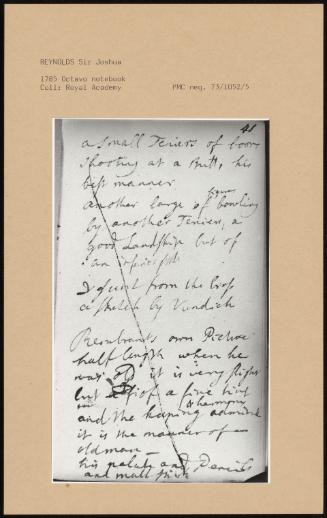 REYNOLDS Sir Joshua
1785 Octavo notebook
Coll: Royal Academy
PMC neg. 73/1052/5
41
a small Teniers of boors
shooting at a Butt, his
best manner
another large of bowling
figures
by another Teniers, a
good Landskip but of
an
from the Cross
a sketch by Vandich
Rembrants own Picture
half length when he
was old it is very slight
but of a fine tint
and the admirable
it is the manner of an
old man —
his palate and Pencils
and mall stick